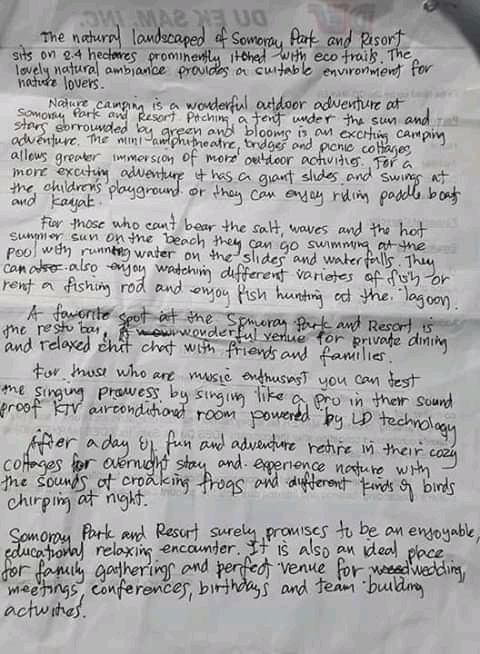 The natural landscaped of Somoray Park and Resort
sits on 2.4 hectares prominently itched with eco trails. The
lovely natural ambiance provides a suitable environment for
nature lovers.
Nature camping is a wonderful outdoor adventure at
Somoray Park and Resort. Pitching a tent under the sun and
stars sorrounded by green and blooms is an exciting camping
adventure. The mini-amphitheatre, bridges and picnic cottages
allows greater immersion of more outdoor activities. For a
more exciting adventure it has a giant slides and swings at
the children's playground or they can enjoy riding paddle boats
and kayak.
For those who can't bear the salt, waves and the hot
summer sun on the beach they can go swimming at the
pool with running water on the slides and waterfalls. They
can also enjoy watching different varieties of fish or
rent a fishing rod and enjoy fish hunting at the lagoon.
A favorite spot at the Somoray Park and Resort is
the resto bar, A wonderful venue for private dining
and relaxed chit chat with friends and families.
For those who are music enthusiast you can test
the singing prowess by singing like a pro in their sound
proof KTV airconditioned room powered by LD technology
After a day of fun and adventure retire in their cozy
cottages for overnight stay and experience nature with
the sounds of croaking frogs and different kinds of birds
chirping at night.
Somoray Park and Resort surely promises to be an enjoyable,
educational relaxing encounter. It is also an ideal place
for family gatherings and perfect venue for wedding,
meetings, conferences, birthdays and team building
activities.